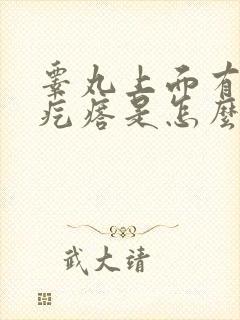 睾丸上面有
疙瘩是怎麼
武大靖